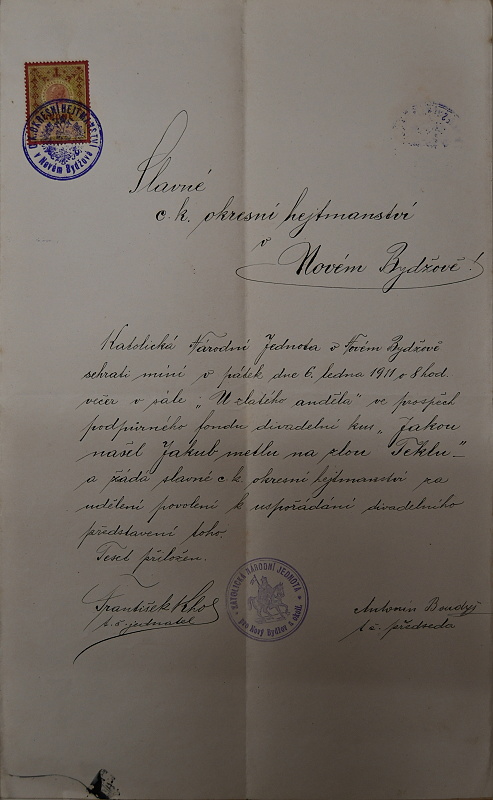 1
C.K. OKRESNÍ HEJTMANSTVÍ
v Novém Bydžově
Slavné
c. k. okresní hejtmanství
v
Novém Bydžově!
Katolická Národní Jednota v Novém Bydžově
sehrati míní v pátek dne 6. ledna 1911 o 8 hod.
večer v sále „U zlatého anděla" ve prospěch
podpůrného fondu divadelní kus „Jakou
našel Jakub metlu na zlou Teklu"
a žádá slavné c. k. okresní hejtmanství za
udělení povolení k uspořádání divadelního
představení toho.
Text přiložen.
KATOLICKÁ NÁRODNÍ JEDNOTA
pro Nový Bydžov a okolí.
František Khol
t. č. jednatel
Antonín Boudyš
t. č. předseda